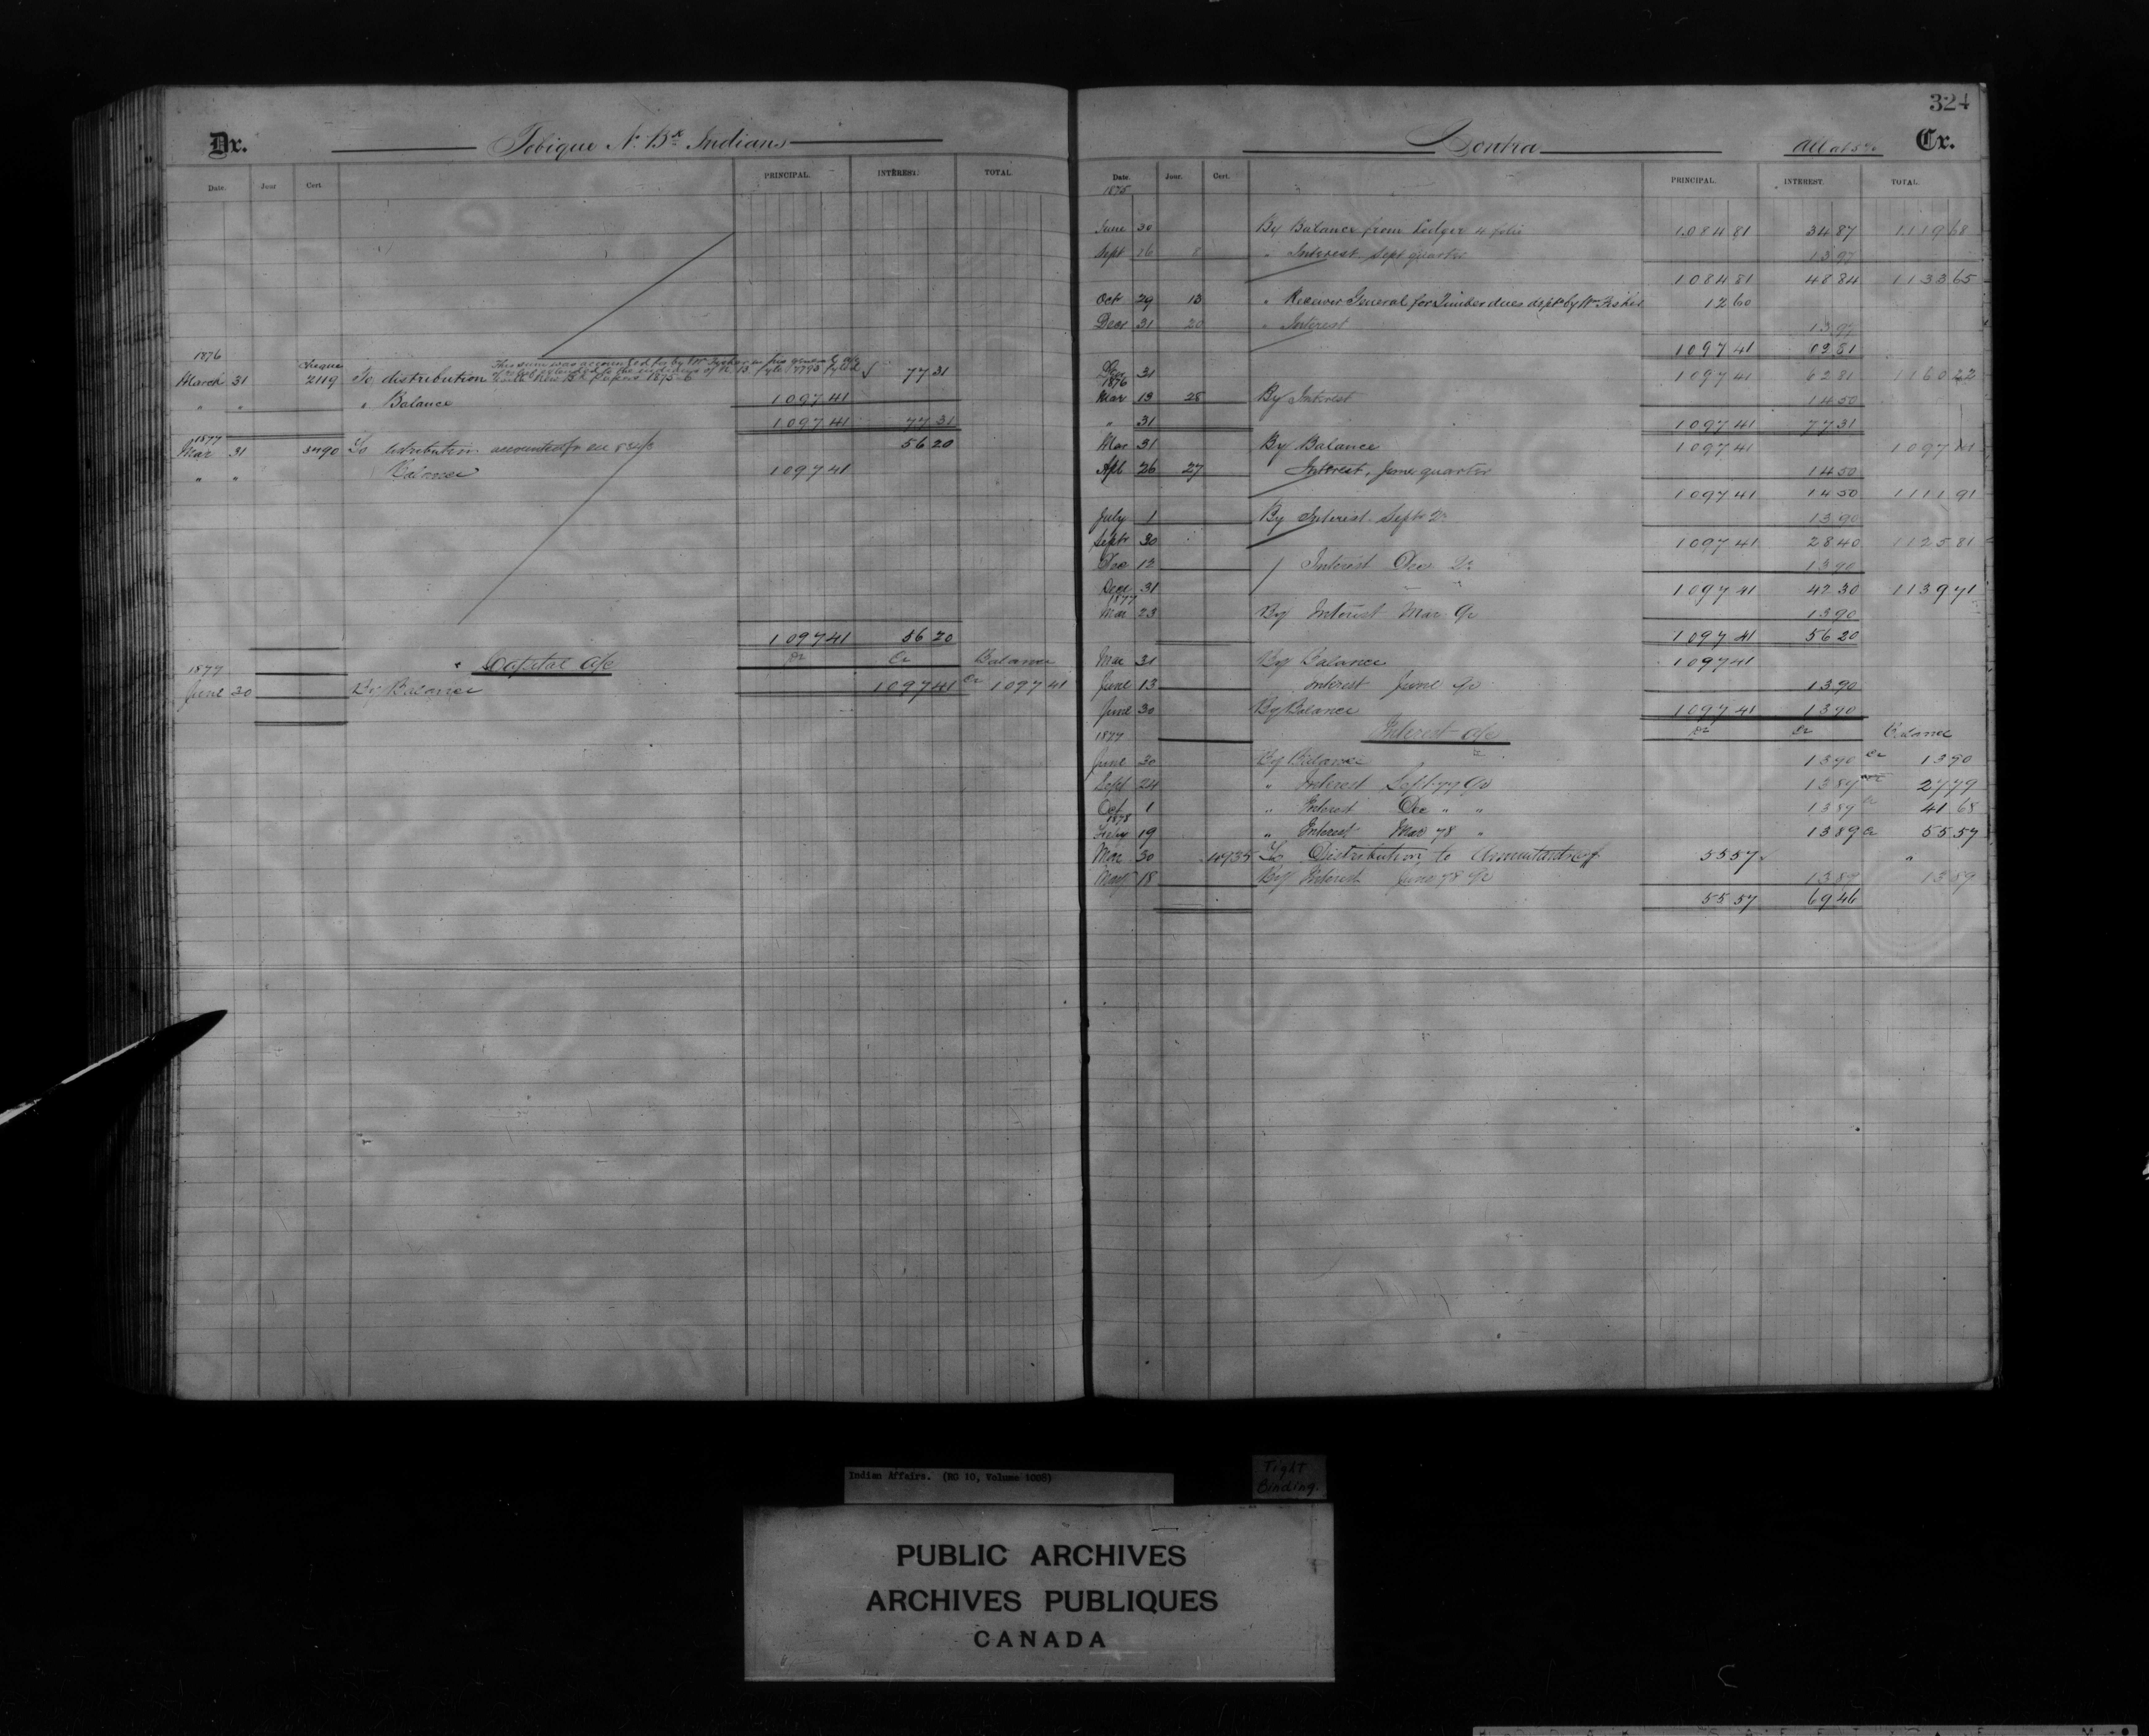 324
Dr. Tobique N. Bk Indians
Date. Jour Cert. PRINCIPAL. INTEREST. TOTAL
1876 Cheque
March 31 2119 To distribution 77 31
" " " Balance 1097 41
1097 41 77 31
1877
Mar 31 3490 To distribution accounted for 56 20
" " Balance 1097 41
1097 41 56 20
Capital a/c Dr Cr Balance
1877
June 30 By Balance 1097 41 Cr 1097 41
Contra All at 5% Cr.
Date. Jour. Cert. PRINCIPAL. INTEREST. TOTAL.
1875
June 30 By Balance from Ledger 4 folio 1084 81 34 87 1119 68
Sept 26 8 " Interest Sept quarter 13 97
1084 81 48 84 1133 65
Oct 29 13 " Receiver General for Timber dues dept by Wm Fisher 12 60
Decr 31 20 " Interest 13 97
1097 41 62 81
31 1097 41 62 81 1160 22
1876
Mar 13 28 By Interest 14 50
" 31 1097 41 77 31
Mar 31 By Balance 1097 41 1097 41
Apl 26 27 Interest, June quarter 14 50
1097 41 14 50 1111 91
July 1 By Interest Sept Qr 13 90
Septr 30 1097 41 28 40 1125 81
Dec 12 Interest Dec Qr 13 90
Decr 31 1097 41 42 30 1139 71
1877
Mar 23 By Interest Mar Qr 13 90
1097 41 56 20
Mar 31 By Balance 1097 41
June 13 Interest June Qr 13 90
June 30 By Balance 1097 41 13 90
1877 Interest a/c Dr Cr Balance
June 30 By Balance 13 90 Cr 13 90
Sept 24 " Interest Sept 77 Qr 13 89 27 79
Oct 1 " Interest Dec " " 13 89 41 68
1878
Feby 19 " Interest Mar 78 " 13 89 Cr 55 57
Mar 30 To Distribution to 55 57 "
May 18 By Interest June 78 Qr 13 89 13 89
55 57 69 46
Indian Affairs. (RG 10, Volume 1008)
Tight
Binding.
PUBLIC ARCHIVES
ARCHIVES PUBLIQUES
CANADA